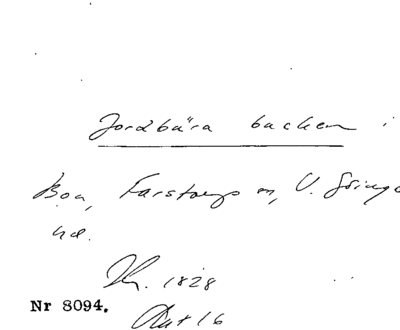 Jordbära backen i
Boa, Farstorps sn, V. Göinge
hd.
1828
Nr 8094.
Akt 16